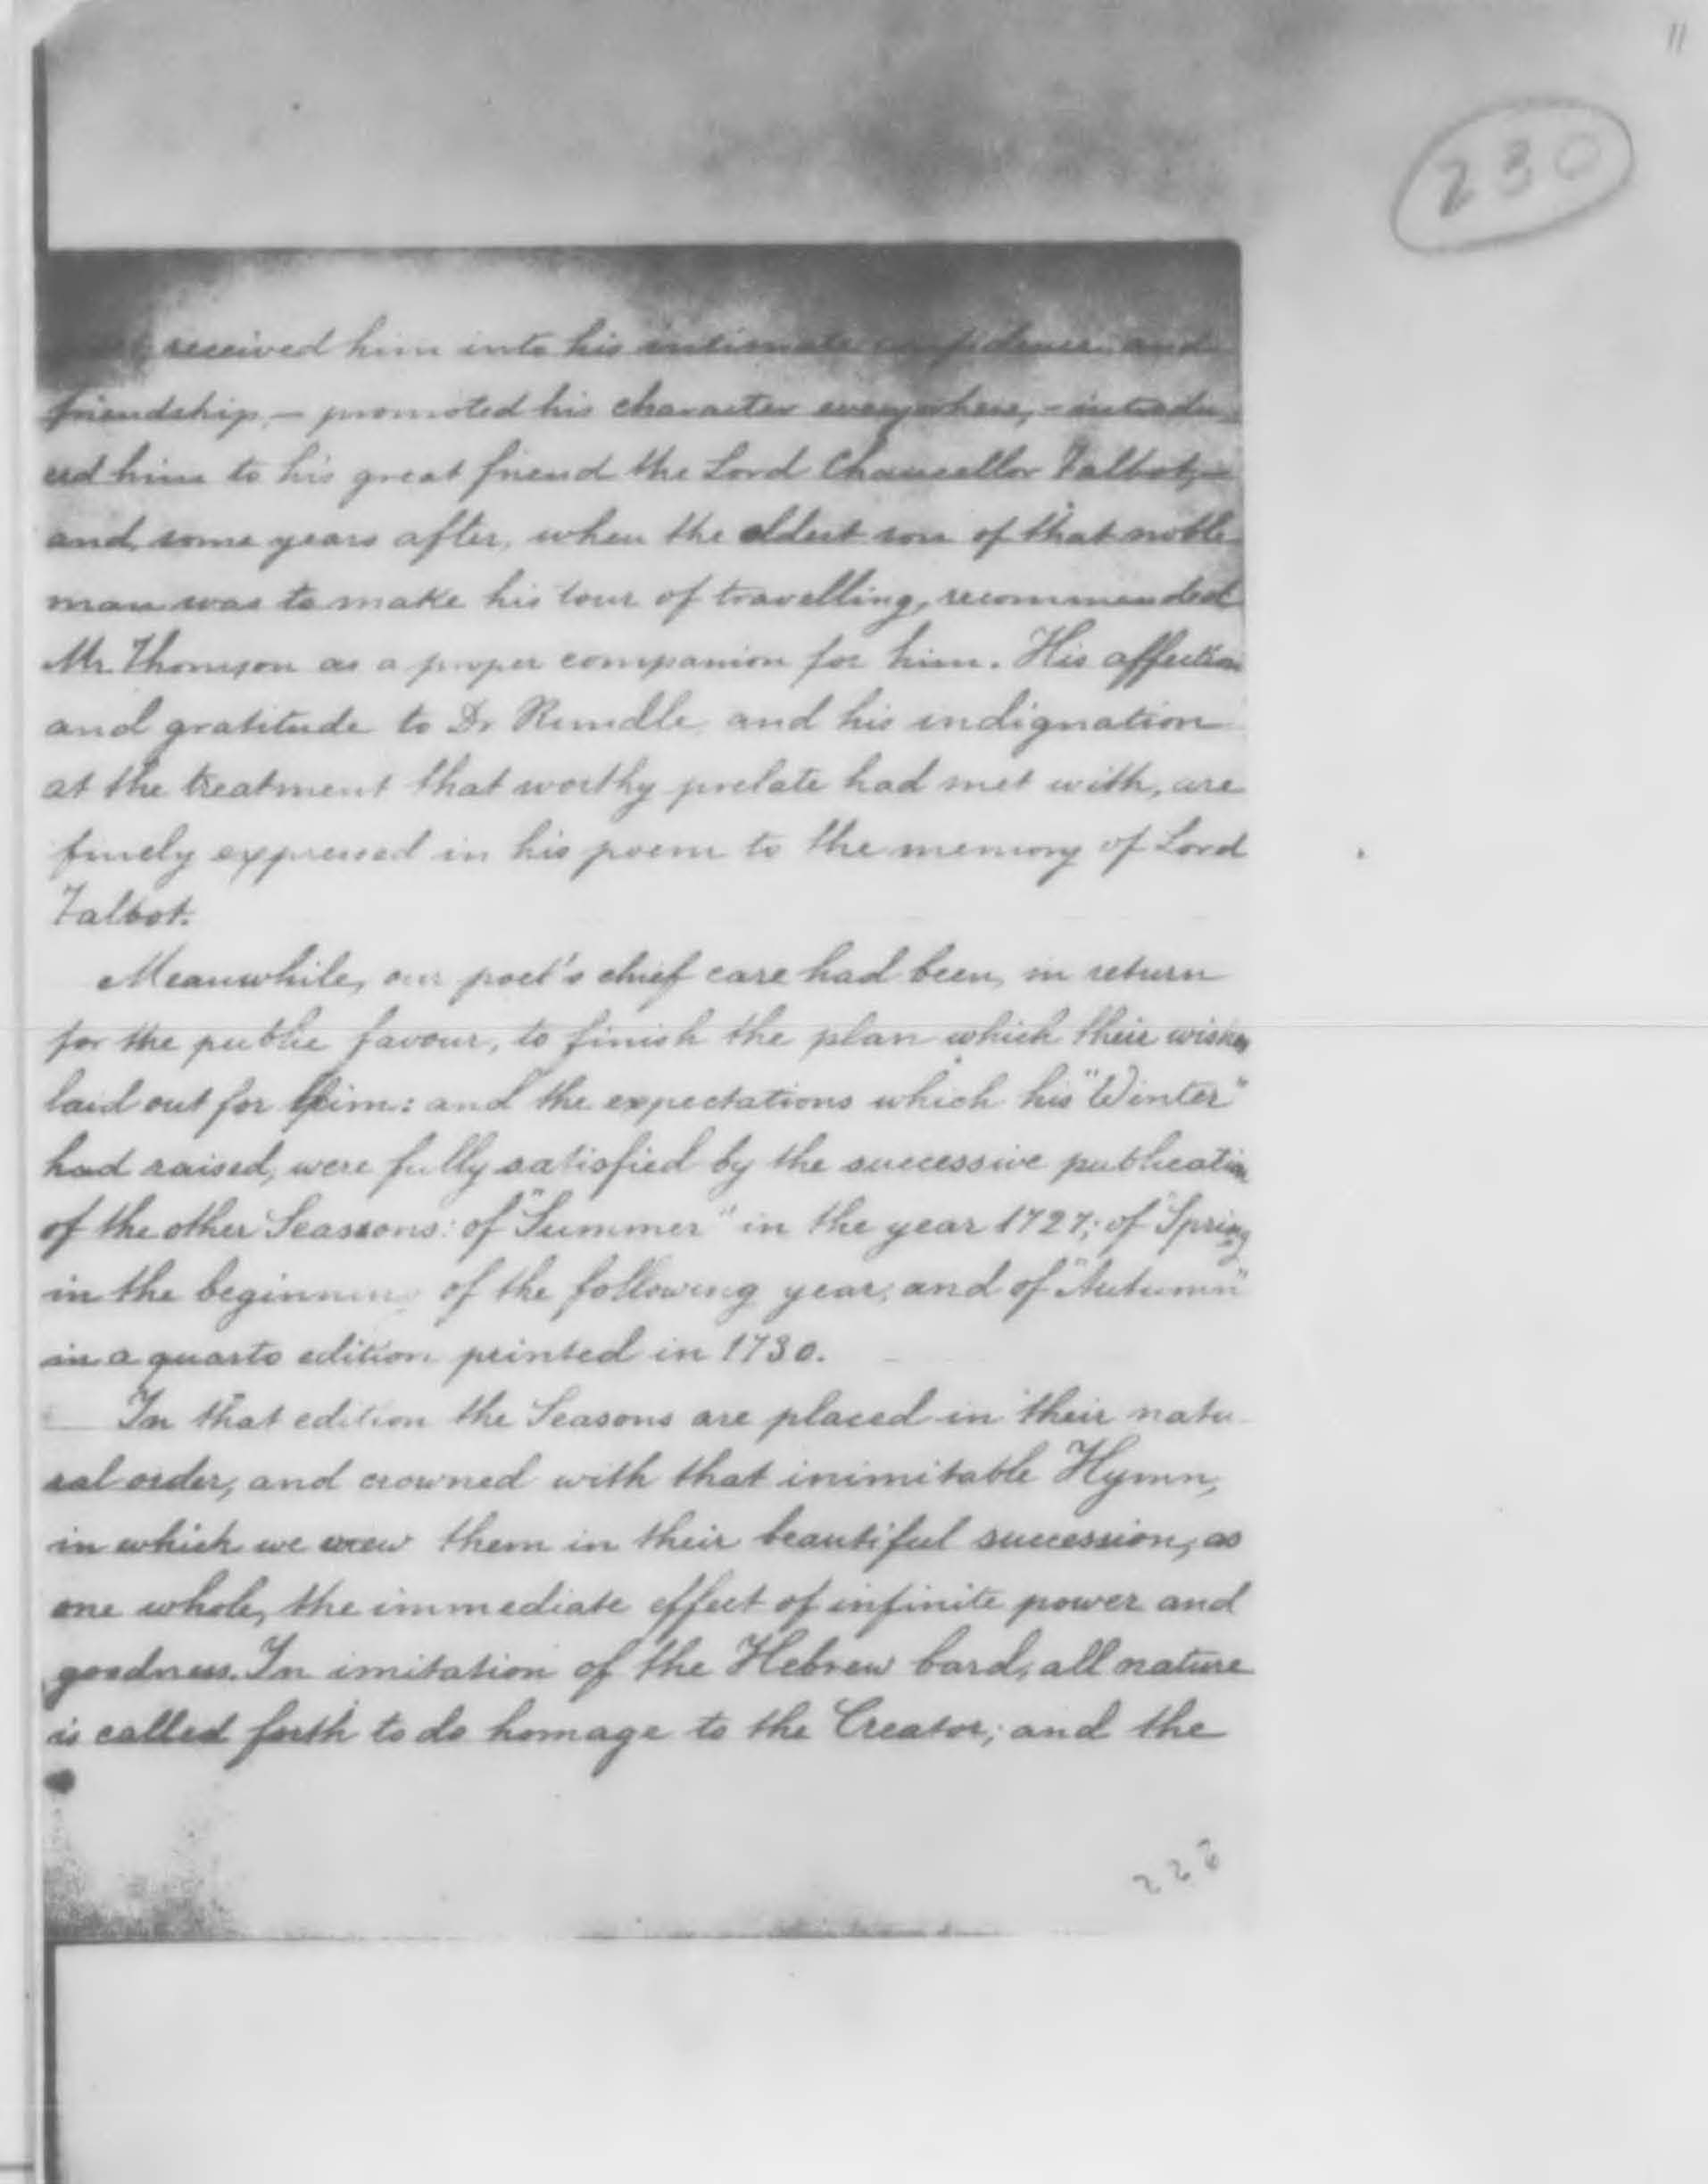 11
230
received him into his intimate confidence and
friendship, – promoted his character everywhere, – introdu-
ced him to his great friend the Lord Chancellor Talbot, –
and, some years after, when the eldest son of that noble
man was to make his tour of travelling, recommended
Mr. Thomson as a proper companion for him. His affection
and gratitude to Dr Rundle, and his indignation
at the treatment that worthy prelate had met with, are
finely expressed in his poem to the memory of Lord
Talbot.
Meanwhile, our poet's chief care had been, in return
for the public favour, to finish the plan which their wishes
laid out for him: and the expectations which his "Winter"
had raised, were fully satisfied by the successive publication
of the other Seasons: of "Summer" in the year 1727; of "Spring
in the beginning of the following year; and of "Autumn"
in a quarto edition printed in 1730.
In that edition the Seasons are placed in their natu-
ral order, and crowned with that inimitable Hymn,
in which we view them in their beautiful succession, as
one whole, the immediate effect of infinite power and
goodness. In imitation of the Hebrew bard, all nature
is called forth to do homage to the Creator; and the